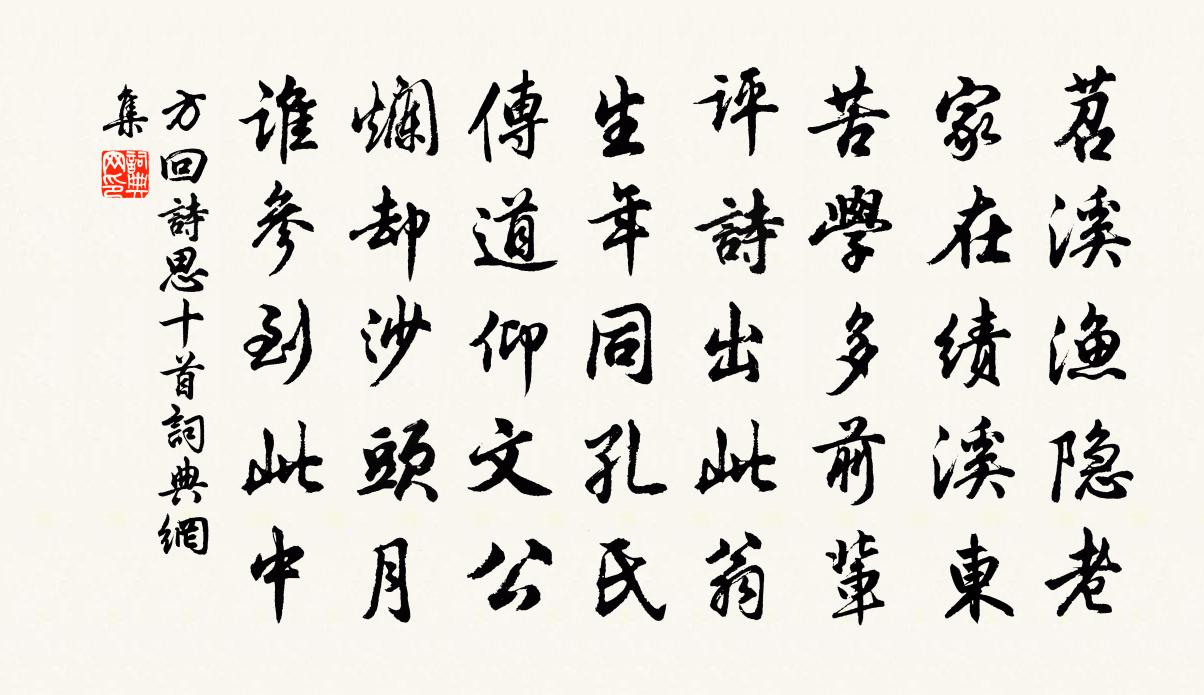 苕溪漁隐老
家在績溪東
苦學多前輩
評詩出此翁
生年同孔氏
傳道仰文公
爛却沙頭月
誰參到此中
方回詩思十首詞典網
集
詞典
网印